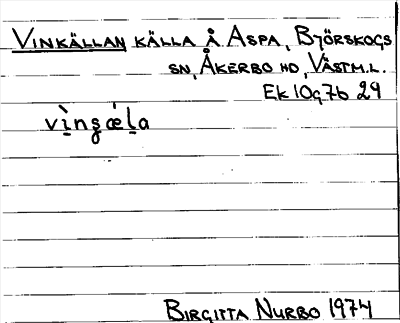 VINKÄLLAN KÄLLA Å ASPA, BJÖRSKOGS
SN, ÅKERBO HD, VÄSTM.L.
EK 10g7b 29
vìnʂǽla
BIRGITTA NURBO 1974